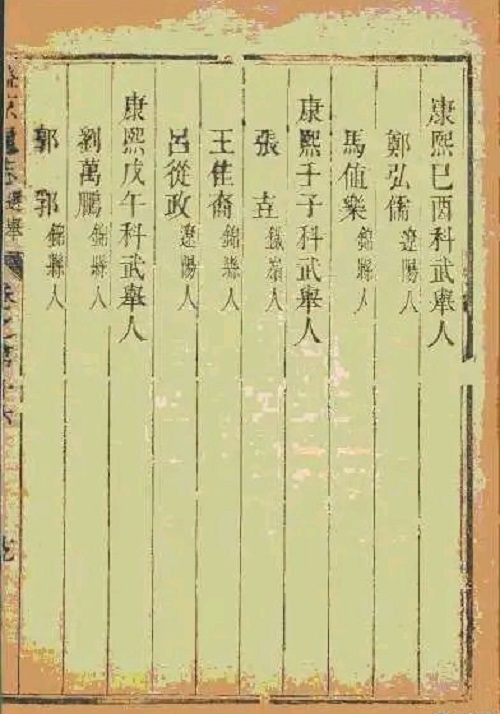 康熙己酉科武舉人
鄭弘儒 遼陽人
馬值樂 錦縣人
康熙壬子科武舉人
張 吉 鐵嶺人
王隹裔 錦縣人
呂從政 遼陽人
康熙戊午科武舉人
劉萬鵬 錦縣人
郭 郛 錦縣人
選舉